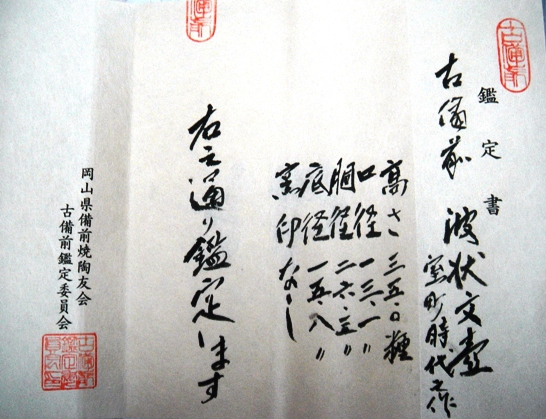 鑑定書
古備前 波状文壺
室町時代作
高さ 三五、〇糎
口径 一三、一〃
胴径 二六、三〃
底径 一五、八〃
窯印なし
右之通り鑑定します
岡山県備前焼陶友会
古備前鑑定委員会